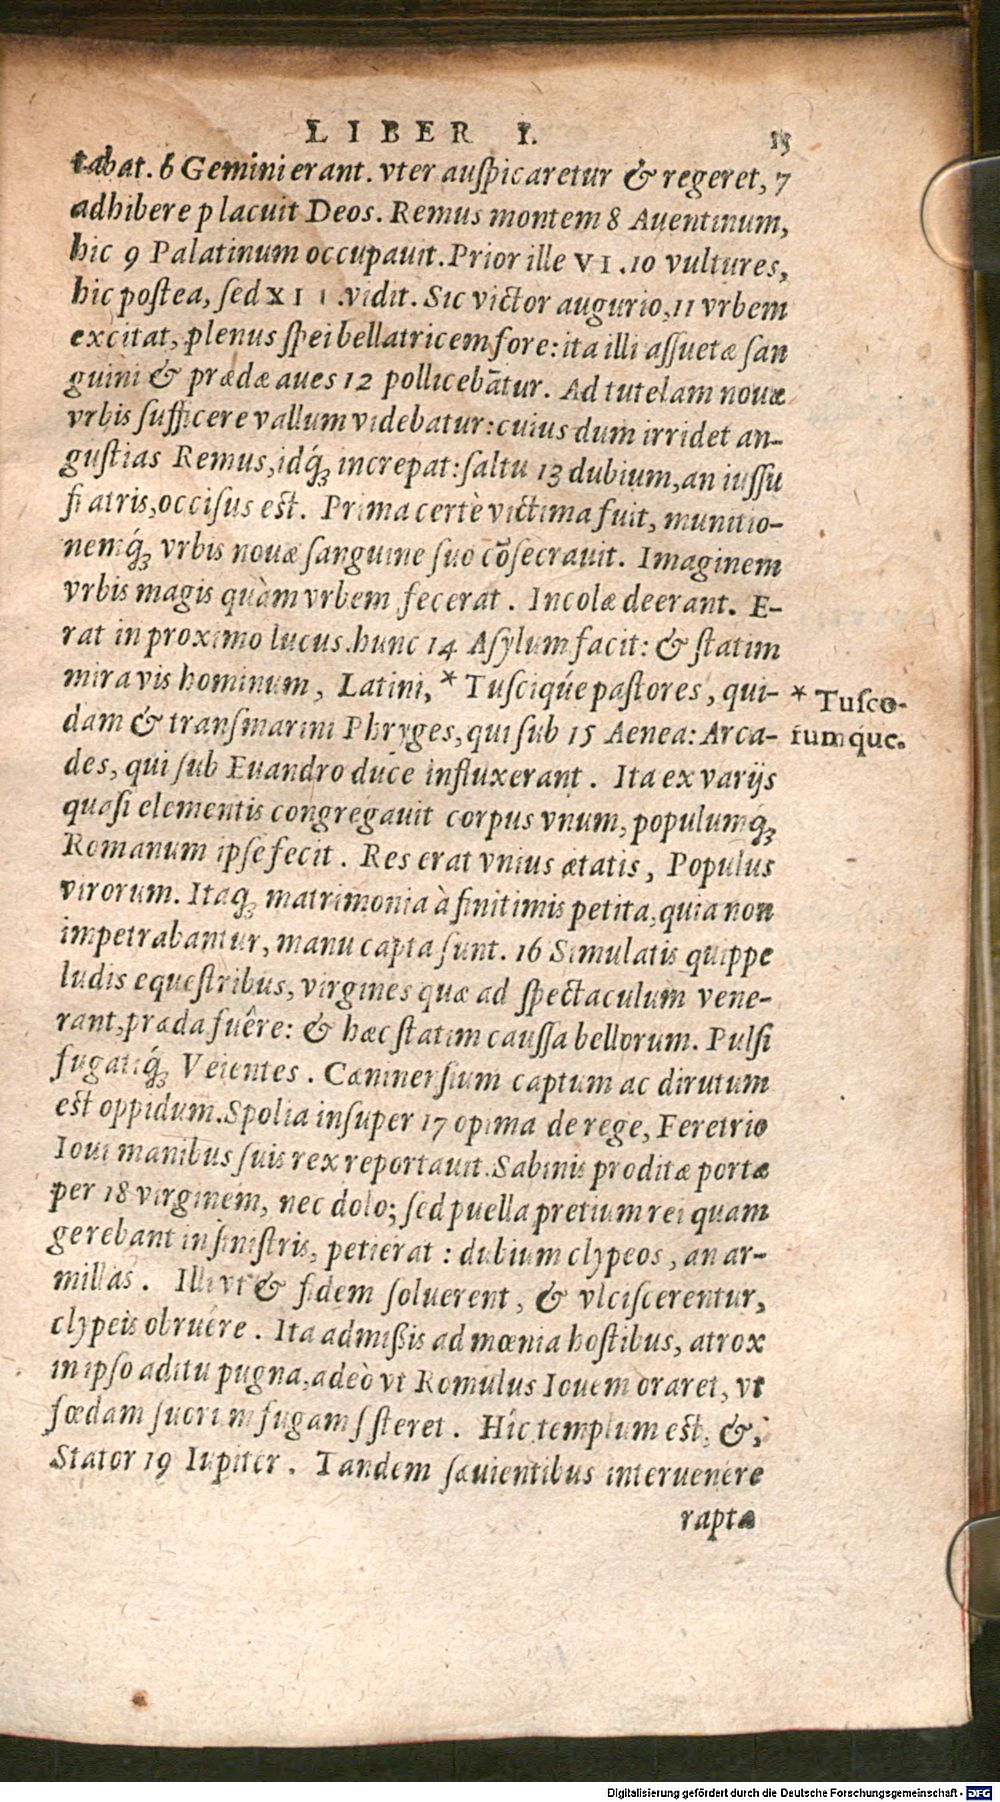 LIBER I. 15
tabat. 6 Gemini erant. vter auſpicaretur & regeret, 7
adhibere placuit Deos. Remus montem 8 Auentinum,
hic 9 Palatinum occupauit. Prior ille VI. 10 vultures,
hic poſtea, ſed XII. vidit. Sic victor augurio, 11 vrbem
excitat, plenus ſpei bellatricem fore: ita illi aſſuetæ ſan
guini & prædæ aues 12 pollicebātur. Ad tutelam nouæ
vrbis ſufficere vallum videbatur: cuius dum irridet an-
guſtias Remus, idq́ꝫ increpat: ſaltu 13 dubium, an iuſſu
fratris, occiſus eſt. Prima certè victima fuit, munitio-
nemq́ꝫ vrbis nouæ ſanguine ſuo cōſecrauit. Imaginem
vrbis magis quàm vrbem fecerat. Incolæ deerant. E-
rat in proximo lucus. hunc 14 Aſylum facit: & ſtatim
mira vis hominum, Latini, * Tuſciq́ue paſtores, qui-
dam & tranſmarini Phryges, qui ſub 15 Aenea: Arca-
des, qui ſub Euandro duce influxerant. Ita ex varijs
quaſi elementis congregauit corpus vnum, populumq́ꝫ
Romanum ipſe fecit. Res erat vnius ætatis, Populus
virorum. Itaqꝫ matrimonia à finitimis petita, quia non
impetrabantur, manu capta ſunt. 16 Simulatis quippe
ludis equeſtribus, virgines quæ ad ſpectaculum vene-
rant, præda fuêre: & hæc ſtatim cauſſa bellorum. Pulſi
fugatiq́ꝫ Veientes. Cæninenſium captum ac dirutum
eſt oppidum. Spolia inſuper 17 opima de rege, Feretrio
Ioui manibus ſuis rex reportauit. Sabinis proditæ portæ
per 18 virginem, nec dolo; ſed puella pretium rei quam
gerebant in ſiniſtris, petierat: dubium clypeos, an ar-
millas. Illi vt & fidem ſoluerent, & vlciſcerentur,
clypeis obruére. Ita admißis ad mœnia hoſtibus, atrox
in ipſo aditu pugna, adeò vt Romulus Iouem oraret, vt
fœdam ſuorum fugam ſiſteret. Hîc templum eſt, &
Stator 19 Iupiter. Tandem ſæuientibus interuenere
raptæ
* Tuſco-
rumque.
Digitalisierung gefördert durch die Deutsche Forschungsgemeinschaft - DFG